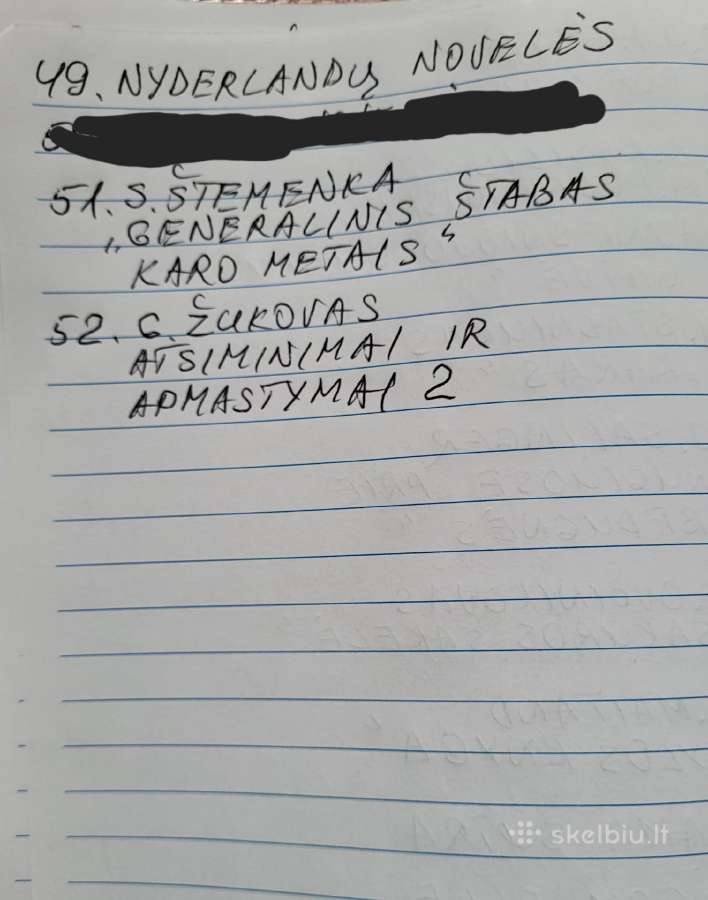 49. NYDERLANDŲ NOVELĖS
51. S. ŠTEMENKA
„GENERALINIS ŠTABAS
KARO METAIS"
52. G. ŽUKOVAS
ATSIMINIMAI IR
APMASTYMAI 2
skelbiu.lt